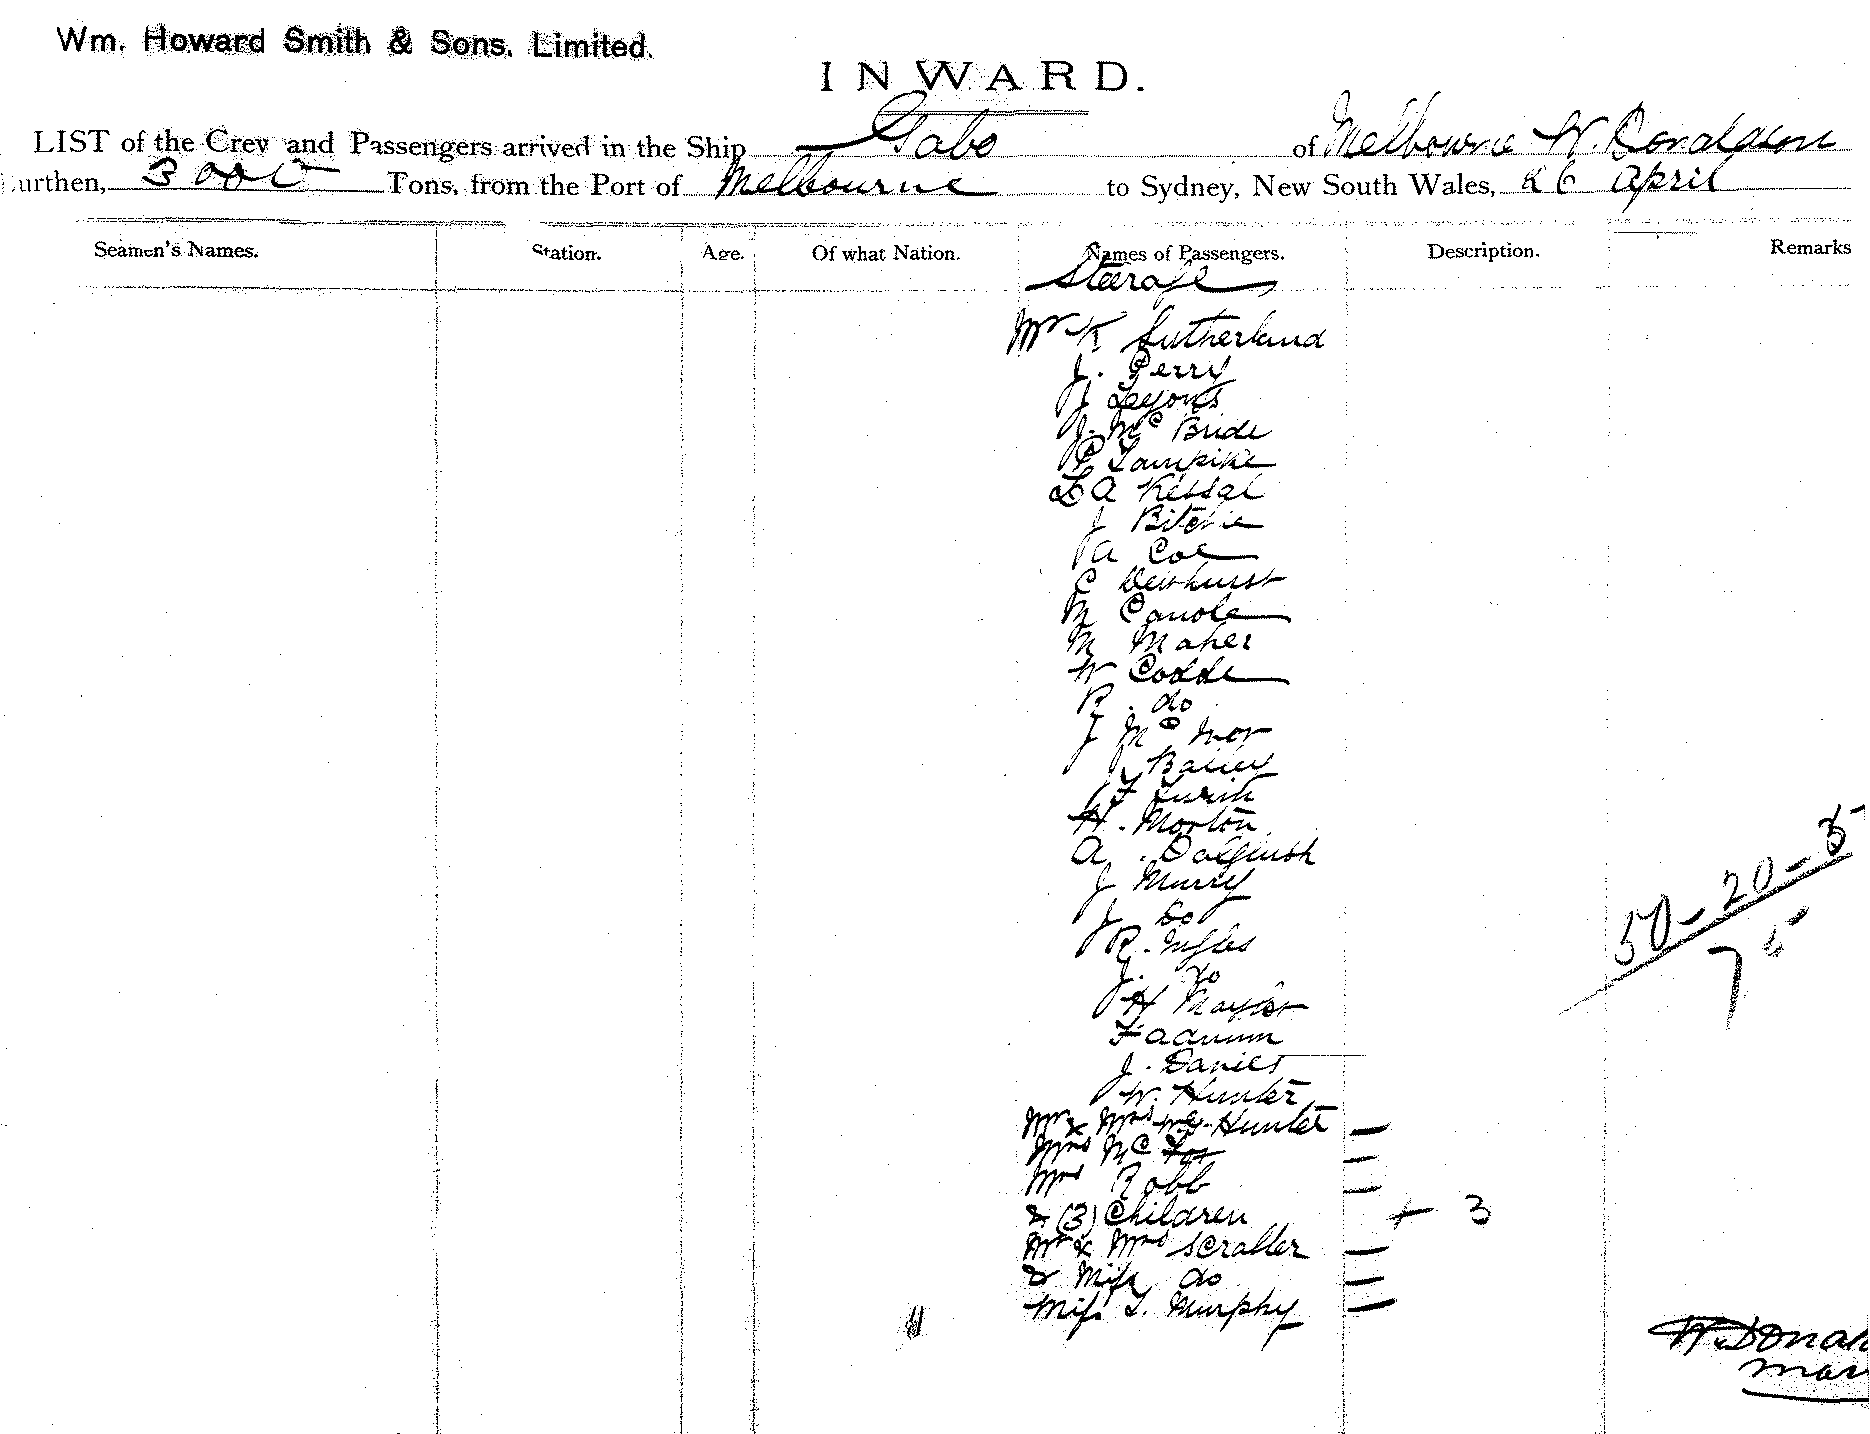 Wm. Howard Smith & Sons. Limited.
INWARD.
LIST of the Crew and Passengers arrived in the Ship Gabo of Melbourne W. Donaldson
urthen, 3000 Tons, from the Port of Melbourne to Sydney, New South Wales, 26 April
Seamen's Names. Station. Age. Of what Nation. Names of Passengers. Description. Remarks
Steerage
Mr K Sutherland
J. Perry
J Leyons
J. Mc Bride
P
L A Kessal
J Ritchie
A Coe
C Dewhurst
M Canole
M Maher
W Codde
R. do
J Mc Ivor
J Bailey
F
H. Morton
A. Dalgleish
J Murry
J Do
R. Ingles
J. Do
H Naylor
F
J. Davies
W. Hunter
Mr & Mrs Hunter
Mrs Mc
Mrs Robb
& (3) Children + 3
Mr & Mrs
& Miss do
Miss T. Murphy
50 - 20 - 5
75
W. Donal
Mas